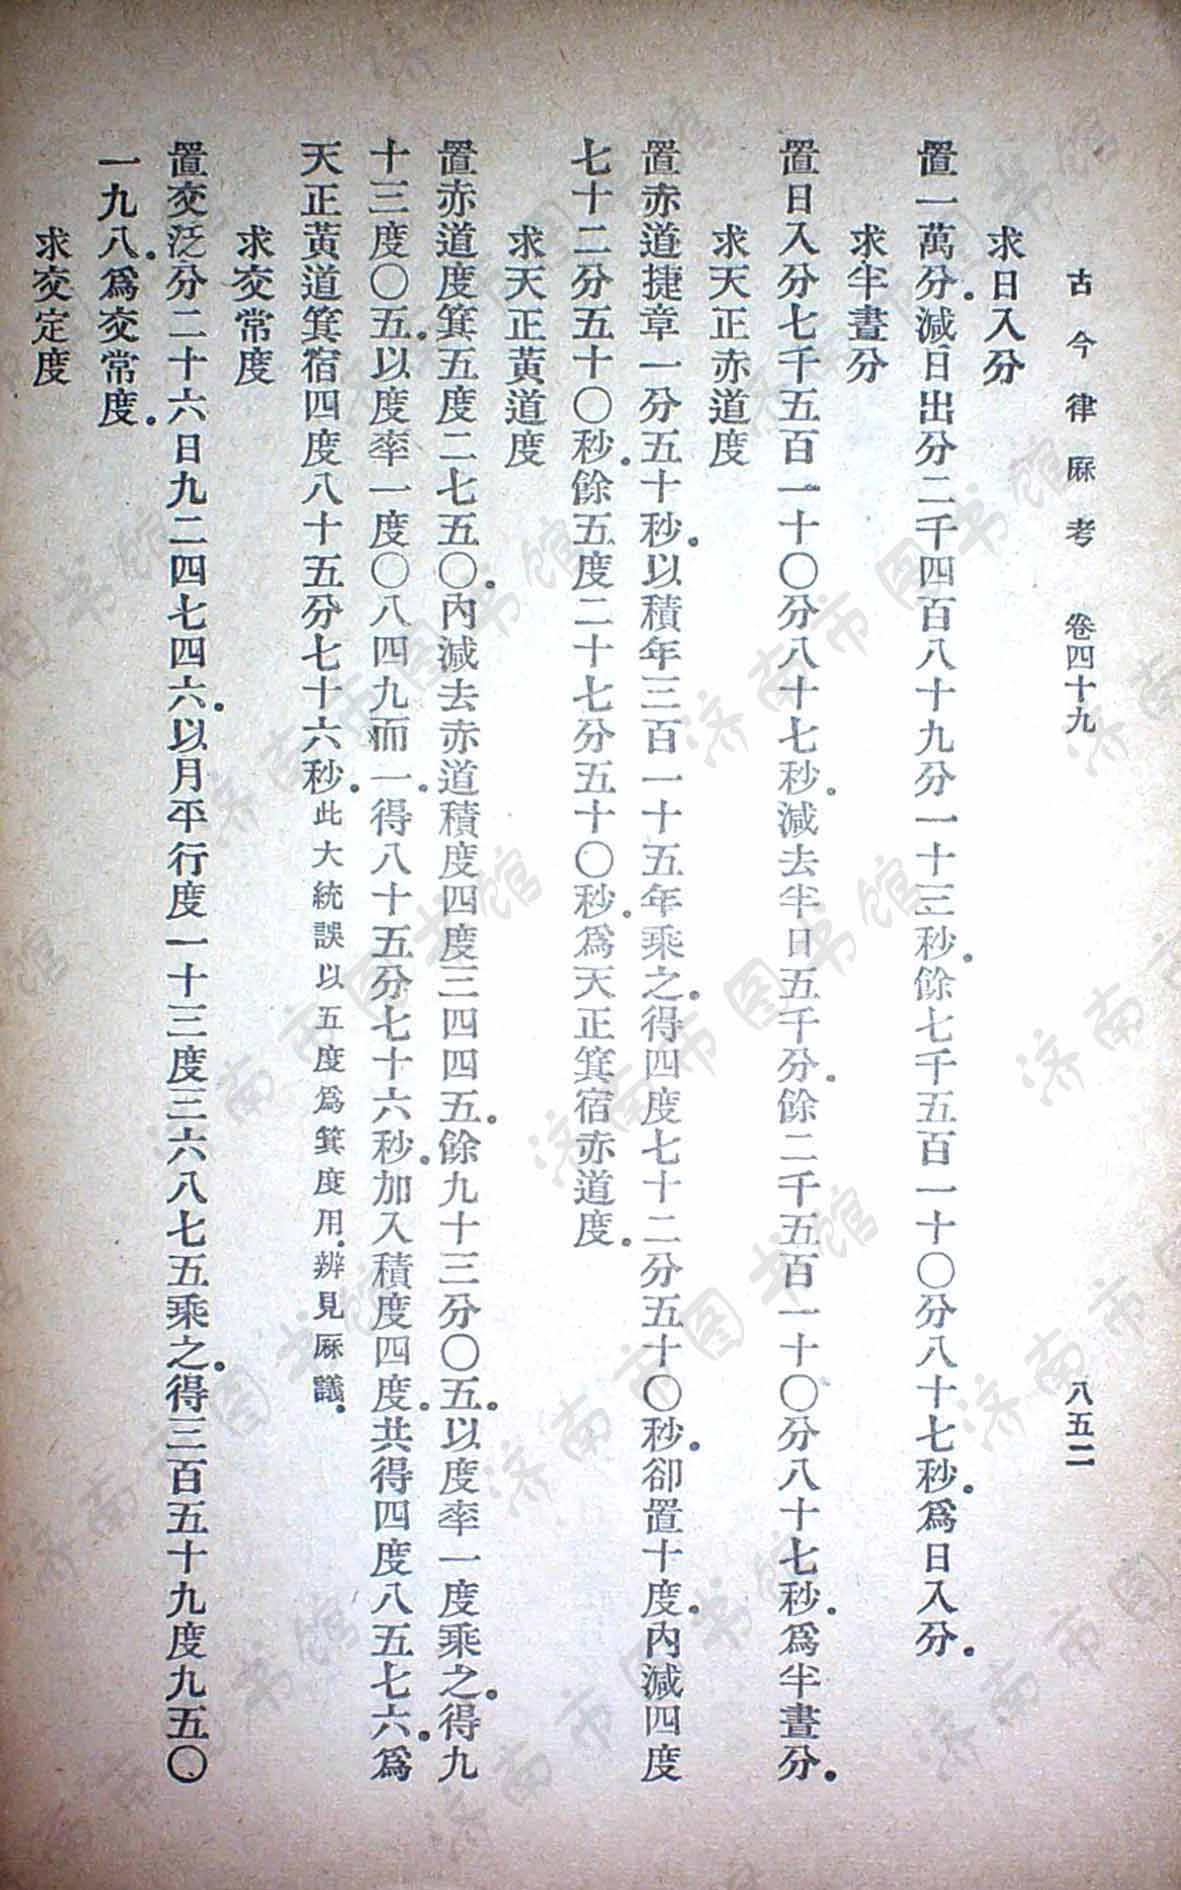 古今律厤考　卷四十九　八五二
求日入分
置一萬分。減日出分二千四百八十九分一十三秒。餘七千五百一十〇分八十七秒。爲日入分。
求半晝分
置日入分七千五百一十〇分八十七秒。減去半日五千分。餘二千五百一十〇分八十七秒。爲半晝分。
求天正赤道度
置赤道捷章一分五十秒。以積年三百一十五年乘之。得四度七十二分五十〇秒。卻置十度。內減四度
七十二分五十〇秒。餘五度二十七分五十〇秒。爲天正箕宿赤道度。
求天正黃道度
置赤道度箕五度二七五〇。內減去赤道積度四度三四四五。餘九十三分〇五。以度率一度乘之。得九
十三度〇五。以度率一度〇八四九而一。得八十五分七十六秒。加入積度四度。共得四度八五七六。爲
天正黃道箕宿四度八十五分七十六秒。此大統誤以五度爲箕度用。辨見厤議。
求交常度
置交泛分二十六日九二四七四六。以月平行度一十三度三六八七五乘之。得三百五十九度九五〇
一九八。爲交常度。
求交定度
济南市图书馆